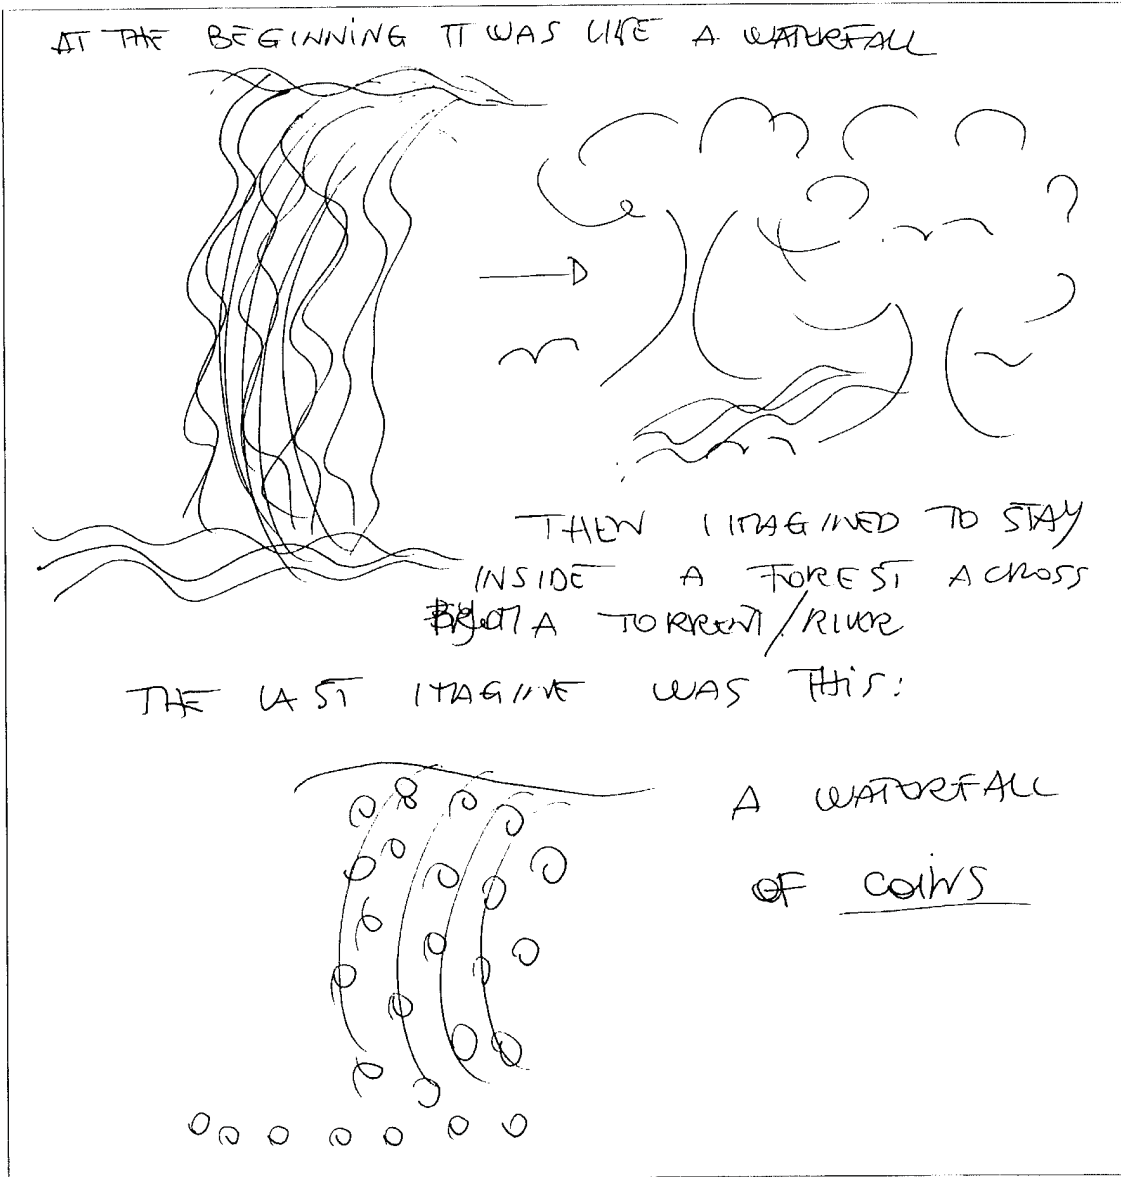 AT THE BEGINNING IT WAS LIKE A WATERFALL
THEN I IMAGINED TO STAY
INSIDE A FOREST ACROSS
A TORRENT/RIVER
THE LAST IMAGINE WAS THIS:
A WATERFALL
OF COINS